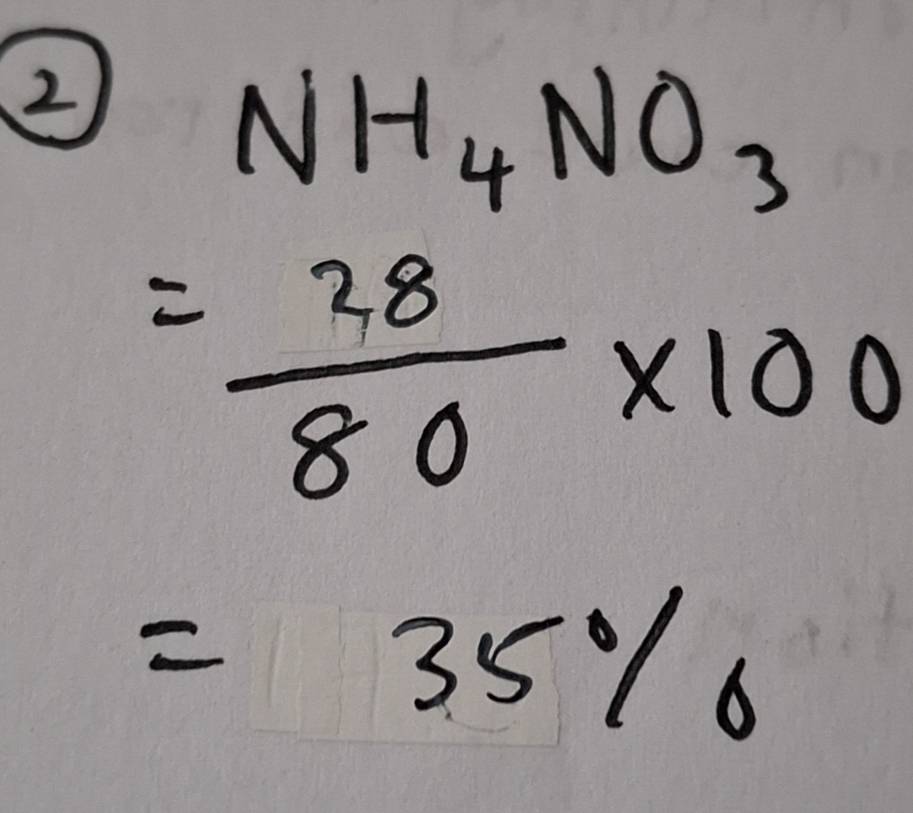 ② NH₄NO₃
= 28/80 ×100
= 35%